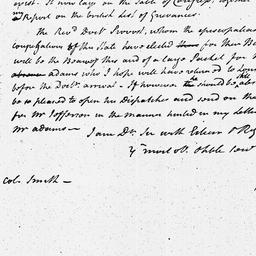 west. It now lays on the Table of Congress, together
Report on the british list of Grievances.
The Revd Doctr Provost, whom the episcopalian
Congregations of this State have elected for their Bi
will be the Bearer of this and of a large Packet for M
adams who I hope will have returned to Lond
before the Doctrs. arrival - If however he should be abs
be so pleased to open his Dispatches and send on that
for Mr Jefferson in the manner hinted in my Letter
Mr adams - I am Dr Sir with Esteem & Reg
Yr most ob. & hble Serv
Col. Smith -